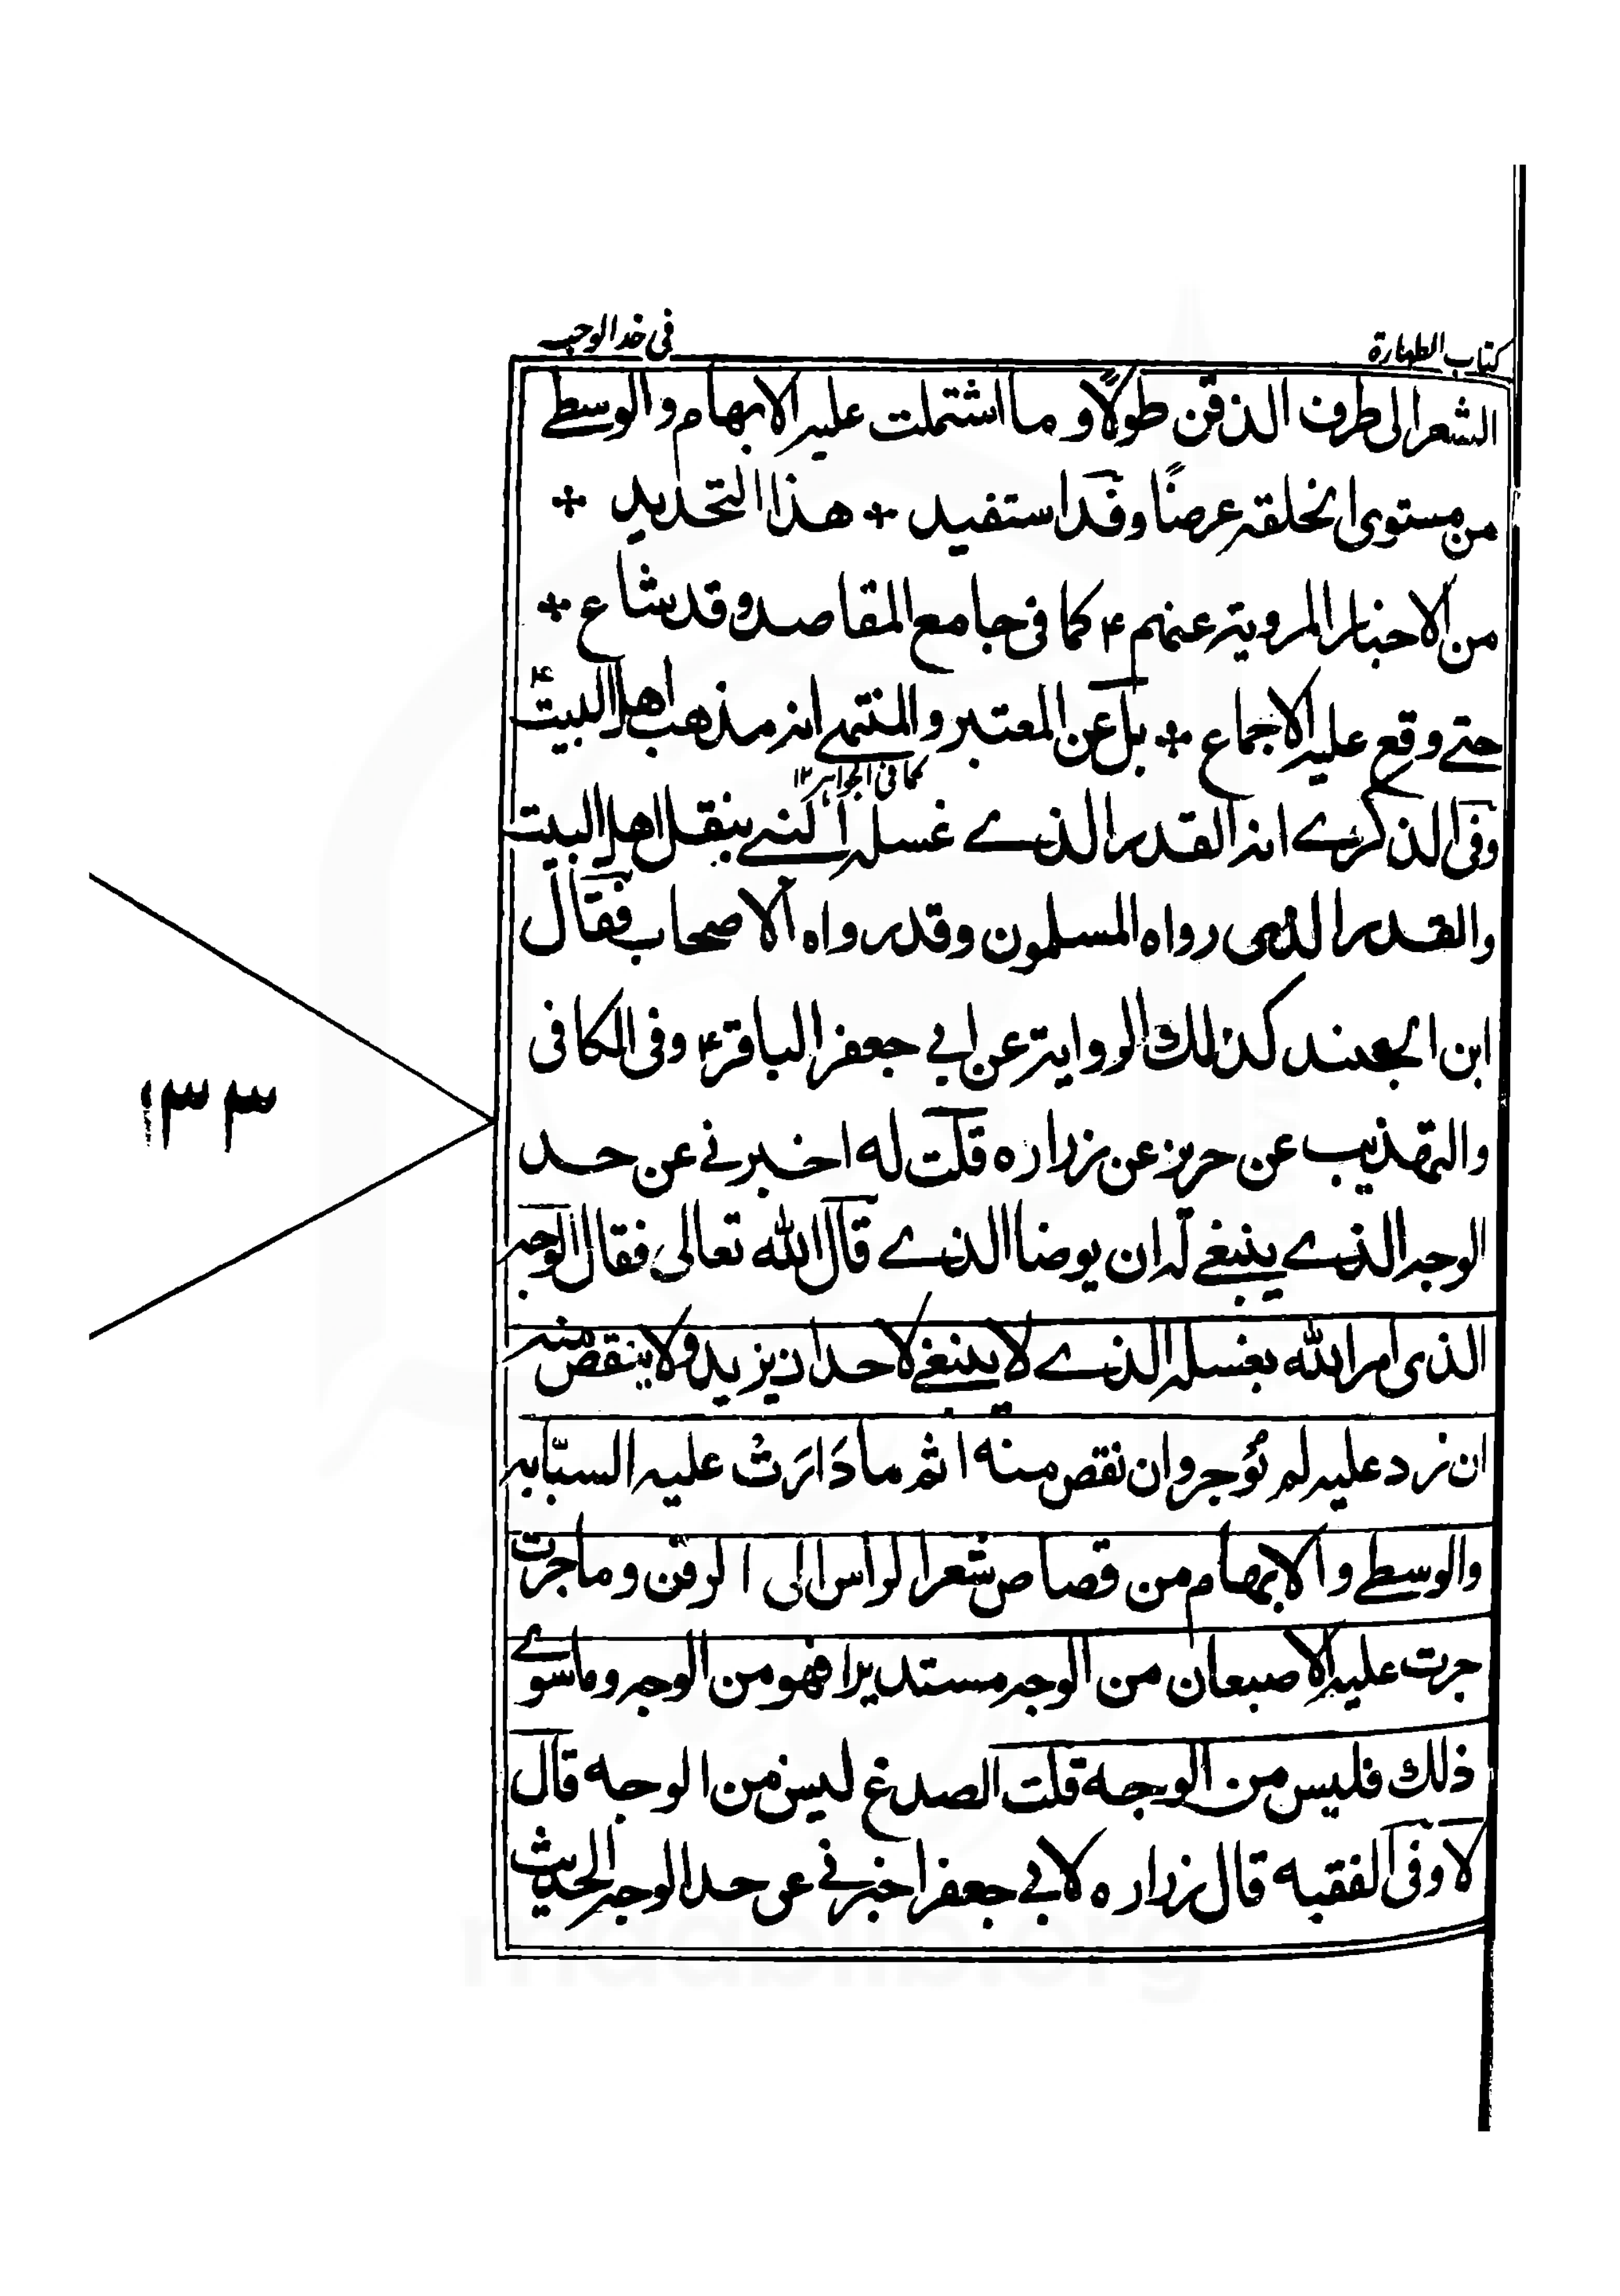 كتاب الطهارة
في حد الوجه
الشعر الى طرف الذقن طولاً و ما اشتملت عليه الابهام والوسطى
من مستوى الخلقه عرضًا وقد استفيد ٭ هذا التحديد ٭
من الاخبار المرويه عنهم ۴ كما فى جامع المقاصد وقد شاع ٭
حتى وقع عليه الاجماع ٭ بل عن المعتبر والمنتهى انه مذهب اهل البيت ۴
كما فى الجواهر ۱۲
وفى الذكرى انه القدر الذى غسله النبى بنقل اهل البيت
والقدر الذى رواه المسلمون وقد رواه الاصحاب فقال
ابن الجنيد كذلك الروايه عن ابي جعفر الباقر ۴ وفى الكافى
والتهذيب عن حريز عن زراره قلت له اخبرنى عن حد
الوجه الذى ينبغى له ان يوضا الذى قال الله تعالى فقال الوجه
الذى امر الله بغسله الذى لا ينبغى لاحد ان يزيد ولا ينقص منه
ان زد عليه لم يُؤجر وان نقص منه اثم ما دَارَتْ عليه السبّابه
والوسطى والابهام من قصاص شعر الراس الى الرقن وما جرت
جرت عليه الاصبعان من الوجه مستديرا فهو من الوجه وما سوى
ذلك فليس من الوجه قلت الصدغ ليس من الوجه قال
لا وفى الفقيه قال زراره لابي جعفر اخبرنى عن حد الوجه الحديث
۱۳۳
maablib.org